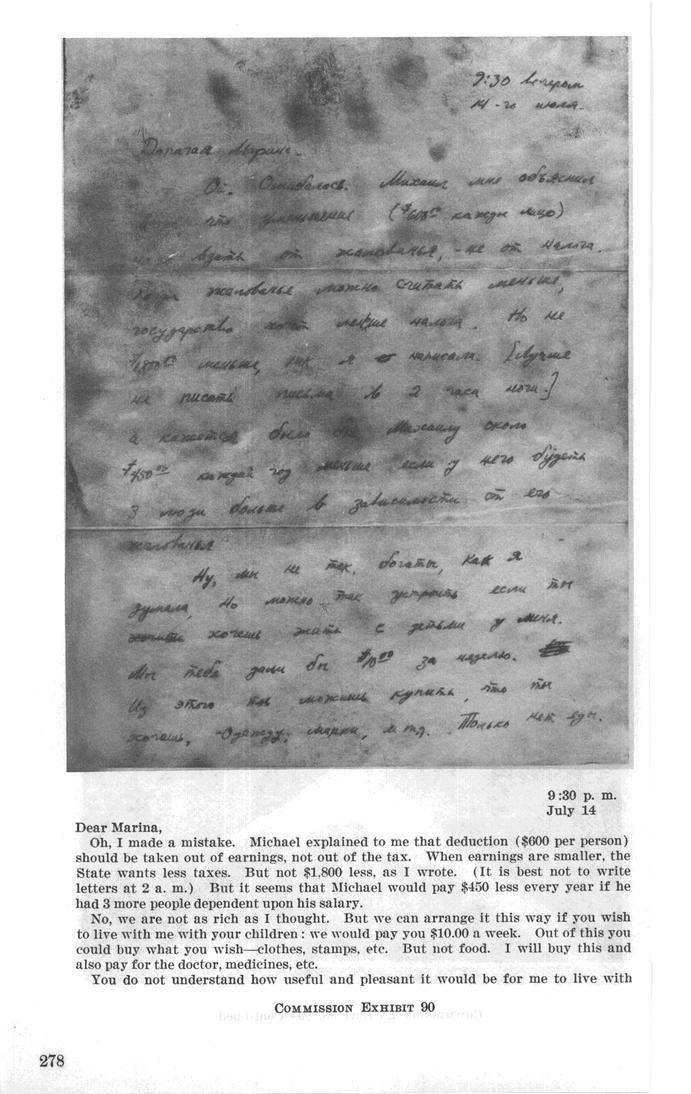 9:30 вечером
14-го июля.
Дорогая Марина.
Ой. Ошибалось. Михаил мне объяснил
что уменшение ($600.00 каждую лицо)
взять от жалованья, - не от налога.
жалованье можно считать меньше,
государство хочет меньше налога. Но не
$1,800.00 меньше, как я написала. [Лучше
не писать письма в 2 часа ночи.]
а кажется было бы Михаилу около
$450.00 каждый год меньше если у него будеть
3 люди больше в зависимости от его
жалованья
Ну, мы не так богаты, как я
думала, Но можно так устроить если ты
хочешь жить с детьми у меня.
Мы тебя дали бы $10.00 за неделю.
Из этого ты можишь купить, что ты
хочешь, - Одежду, марки, и т.д. Только нет еды.
9:30 p. m.
July 14
Dear Marina,
Oh, I made a mistake. Michael explained to me that deduction ($600 per person)
should be taken out of earnings, not out of the tax. When earnings are smaller, the
State wants less taxes. But not $1,800 less, as I wrote. (It is best not to write
letters at 2 a. m.) But it seems that Michael would pay $450 less every year if he
had 3 more people dependent upon his salary.
No, we are not as rich as I thought. But we can arrange it this way if you wish
to live with me with your children : we would pay you $10.00 a week. Out of this you
could buy what you wish—clothes, stamps, etc. But not food. I will buy this and
also pay for the doctor, medicines, etc.
You do not understand how useful and pleasant it would be for me to live with
COMMISSION EXHIBIT 90
278